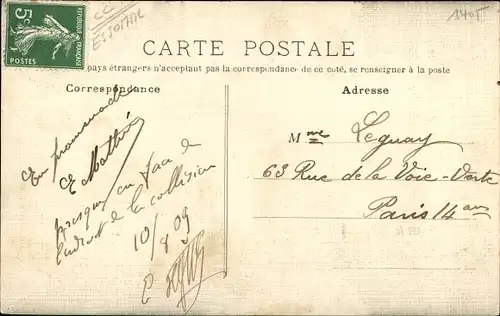 RÉPUBLIQUE FRANÇAISE
5c
ESSONNE
1405
CARTE POSTALE
pays étrangers n'acceptant pas la correspondance de ce côté, se renseigner à la poste
Correspondance
En promenade
E Mathieu
presque en face de
l'endroit de la collision
10/8 09
E
Adresse
Mme Leguay
63 Rue de la Voie-Verte
Paris 14